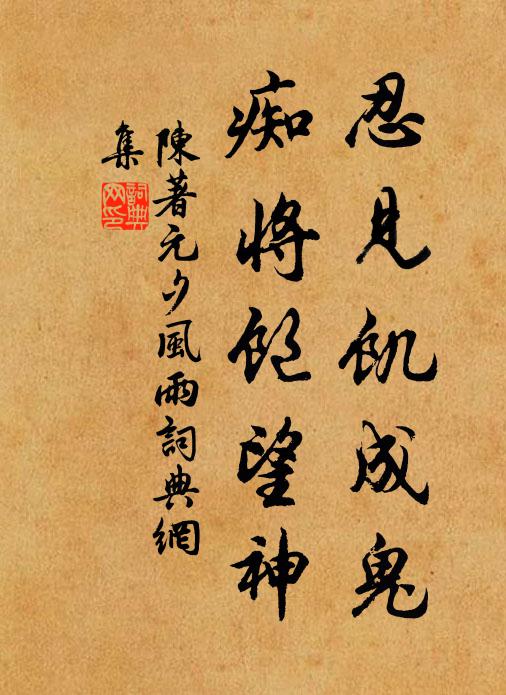 忍見飢成鬼
痴將飽望神
陳著元夕風雨詞典網
集
詞典
网印